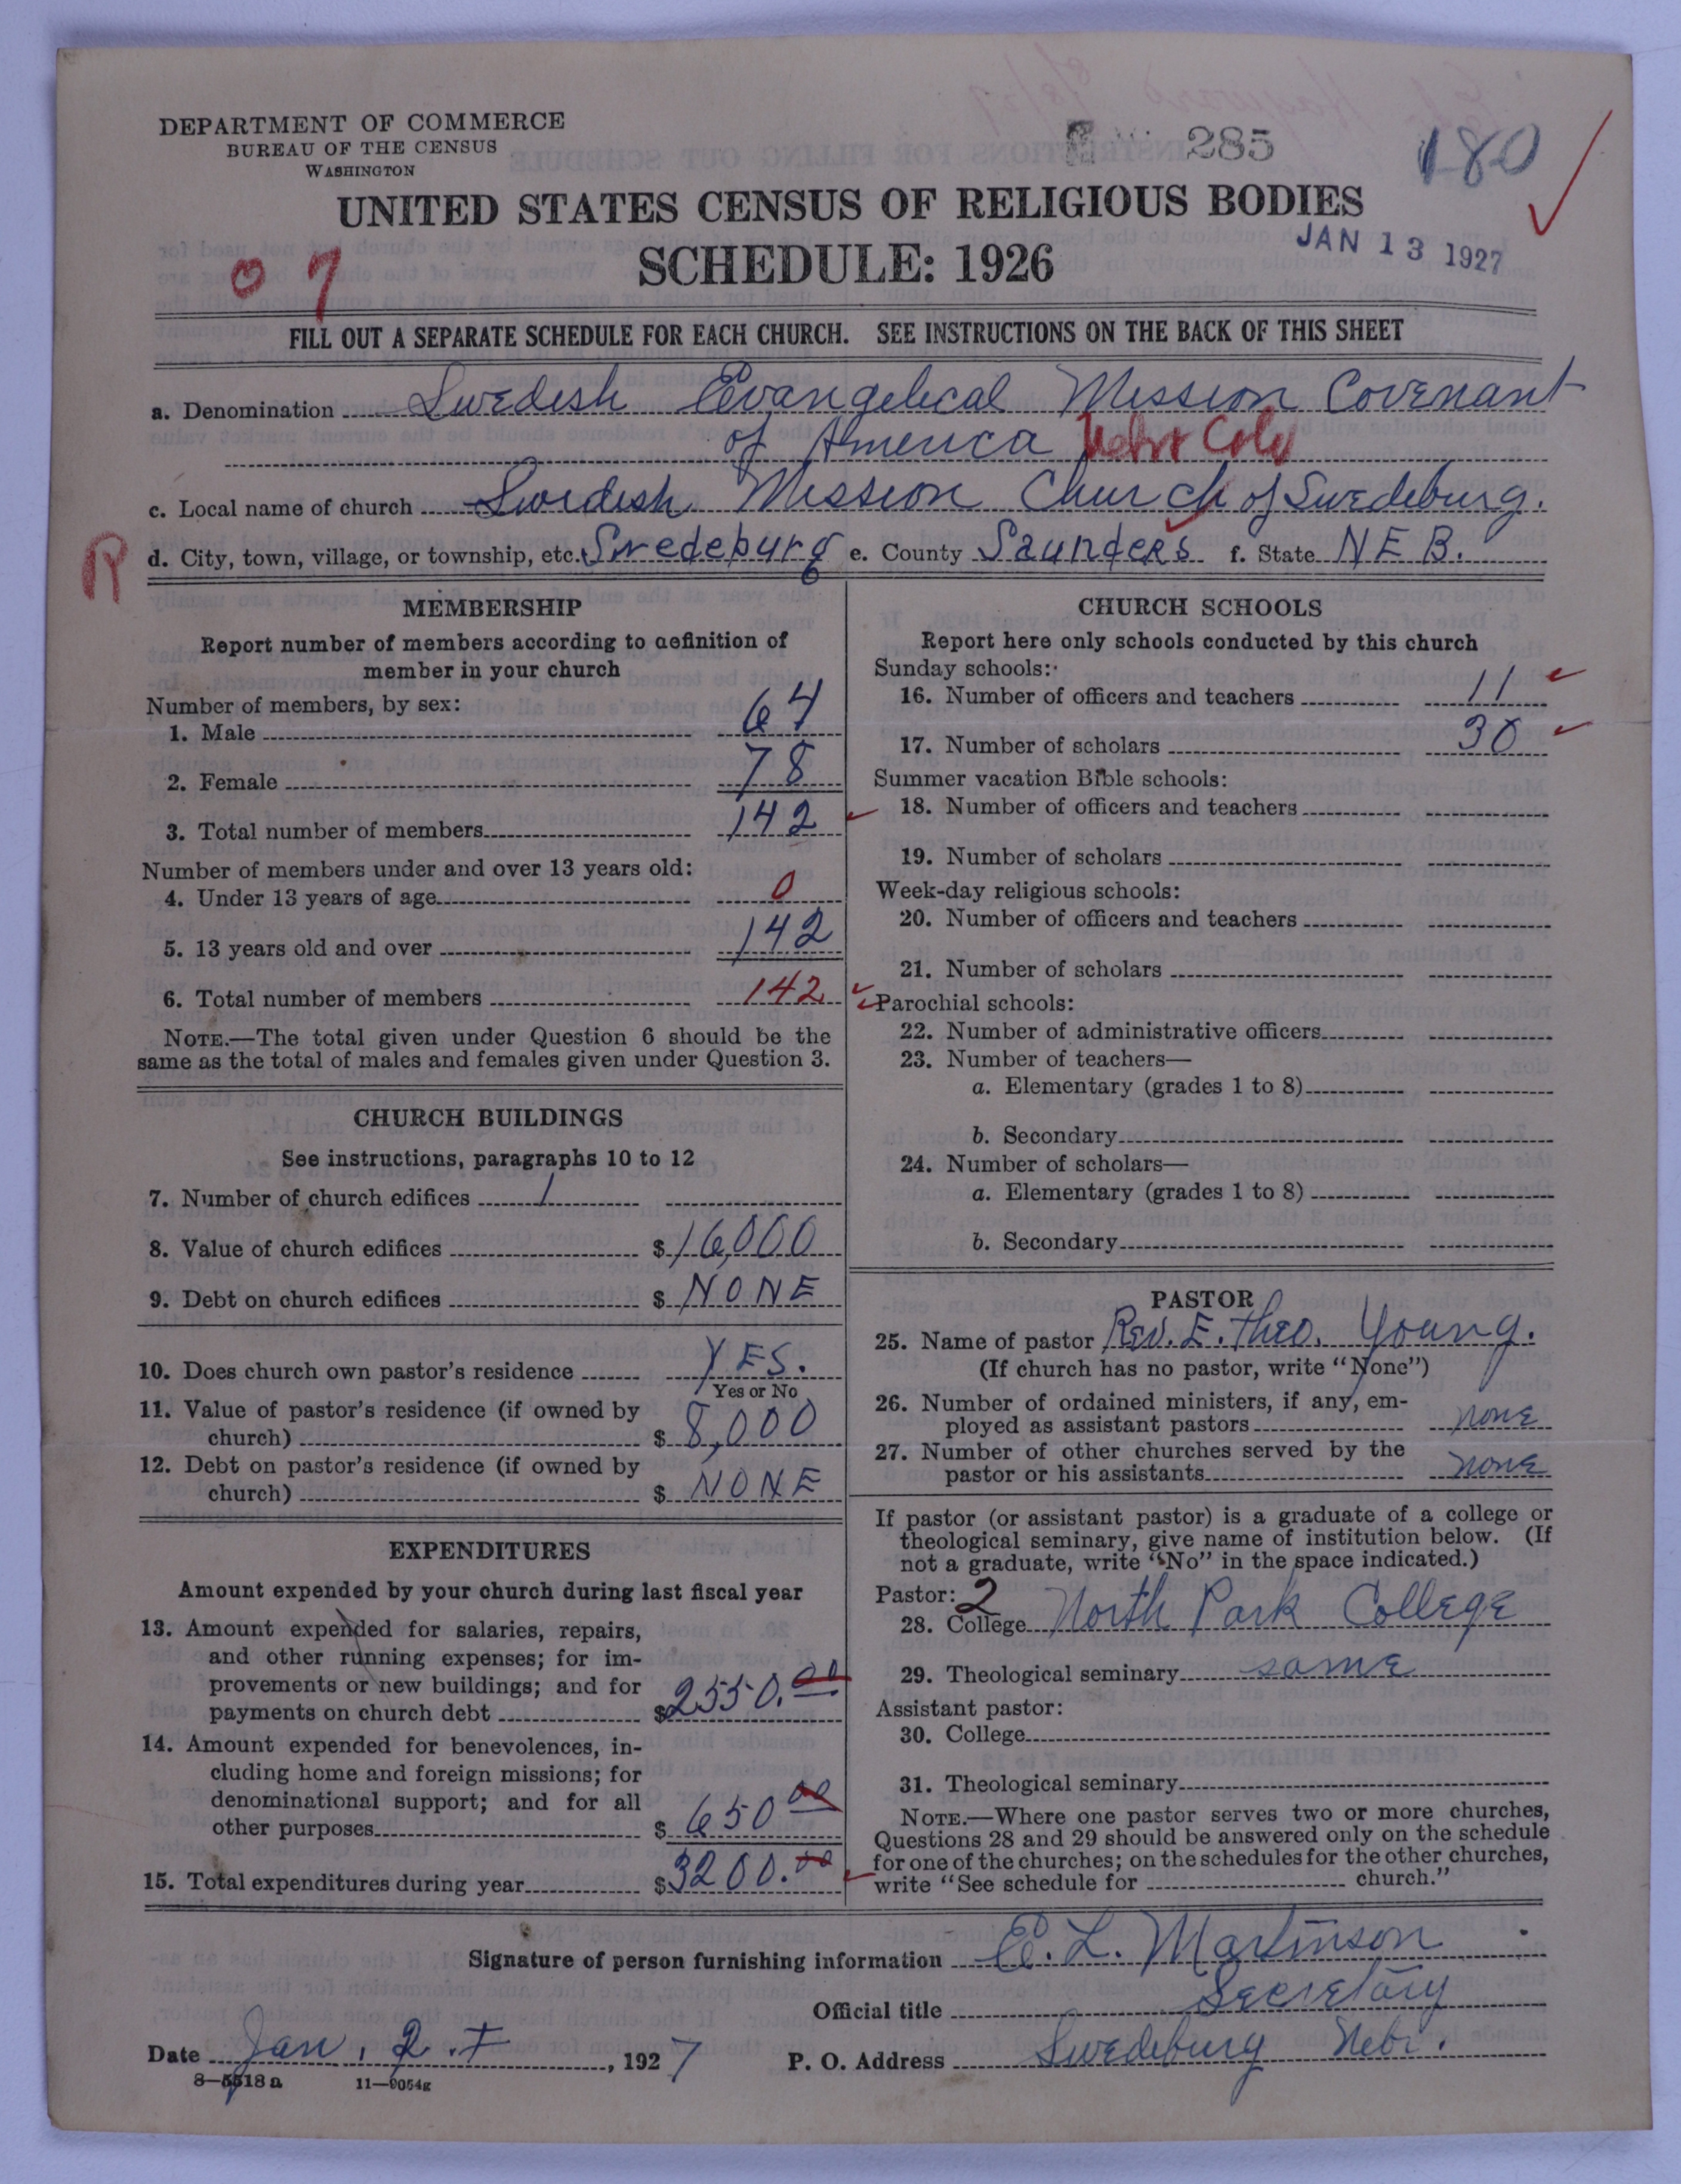 DEPARTMENT OF COMMERCE
BUREAU OF THE CENSUS
WASHINGTON
285
180
UNITED STATES CENSUS OF RELIGIOUS BODIES
SCHEDULE: 1926
JAN 13 1927
07
FILL OUT A SEPARATE SCHEDULE FOR EACH CHURCH. SEE INSTRUCTIONS ON THE BACK OF THIS SHEET
a. Denomination Swedish Evangelical Mission Covenant
of America Nebr Colo
c. Local name of church Swedish Mission Church of Swedeburg.
R
d. City, town, village, or township, etc. Swedeburg e. County Saunders f. State NEB.
MEMBERSHIP
Report number of members according to definition of
member in your church
Number of members, by sex:
1. Male 64
2. Female 78
3. Total number of members 142
Number of members under and over 13 years old:
4. Under 13 years of age 0
5. 13 years old and over 142
6. Total number of members 142
NOTE.—The total given under Question 6 should be the
same as the total of males and females given under Question 3.
CHURCH BUILDINGS
See instructions, paragraphs 10 to 12
7. Number of church edifices 1
8. Value of church edifices $16,000
9. Debt on church edifices $ NONE
10. Does church own pastor's residence YES.
Yes or No
11. Value of pastor's residence (if owned by
church) $ 8,000
12. Debt on pastor's residence (if owned by
church) $ NONE
EXPENDITURES
Amount expended by your church during last fiscal year
13. Amount expended for salaries, repairs,
and other running expenses; for im-
provements or new buildings; and for
payments on church debt $2550.00
14. Amount expended for benevolences, in-
cluding home and foreign missions; for
denominational support; and for all
other purposes $ 650 00
15. Total expenditures during year $3200.00
CHURCH SCHOOLS
Report here only schools conducted by this church
Sunday schools:
16. Number of officers and teachers 11
17. Number of scholars 30
Summer vacation Bible schools:
18. Number of officers and teachers
19. Number of scholars
Week-day religious schools:
20. Number of officers and teachers
21. Number of scholars
Parochial schools:
22. Number of administrative officers
23. Number of teachers—
a. Elementary (grades 1 to 8)
b. Secondary
24. Number of scholars—
a. Elementary (grades 1 to 8)
b. Secondary
PASTOR
25. Name of pastor Rev. E. Theo. Young.
(If church has no pastor, write "None")
26. Number of ordained ministers, if any, em-
ployed as assistant pastors none
27. Number of other churches served by the
pastor or his assistants none
If pastor (or assistant pastor) is a graduate of a college or
theological seminary, give name of institution below. (If
not a graduate, write "No" in the space indicated.)
Pastor: 2
28. College North Park College
29. Theological seminary same
Assistant pastor:
30. College
31. Theological seminary
NOTE.—Where one pastor serves two or more churches,
Questions 28 and 29 should be answered only on the schedule
for one of the churches; on the schedules for the other churches,
write "See schedule for church."
Signature of person furnishing information E. L. Martinson
Official title Secretary
Date Jan. 2, 1927 P. O. Address Swedeburg Nebr.
8—5518 a 11—9054g